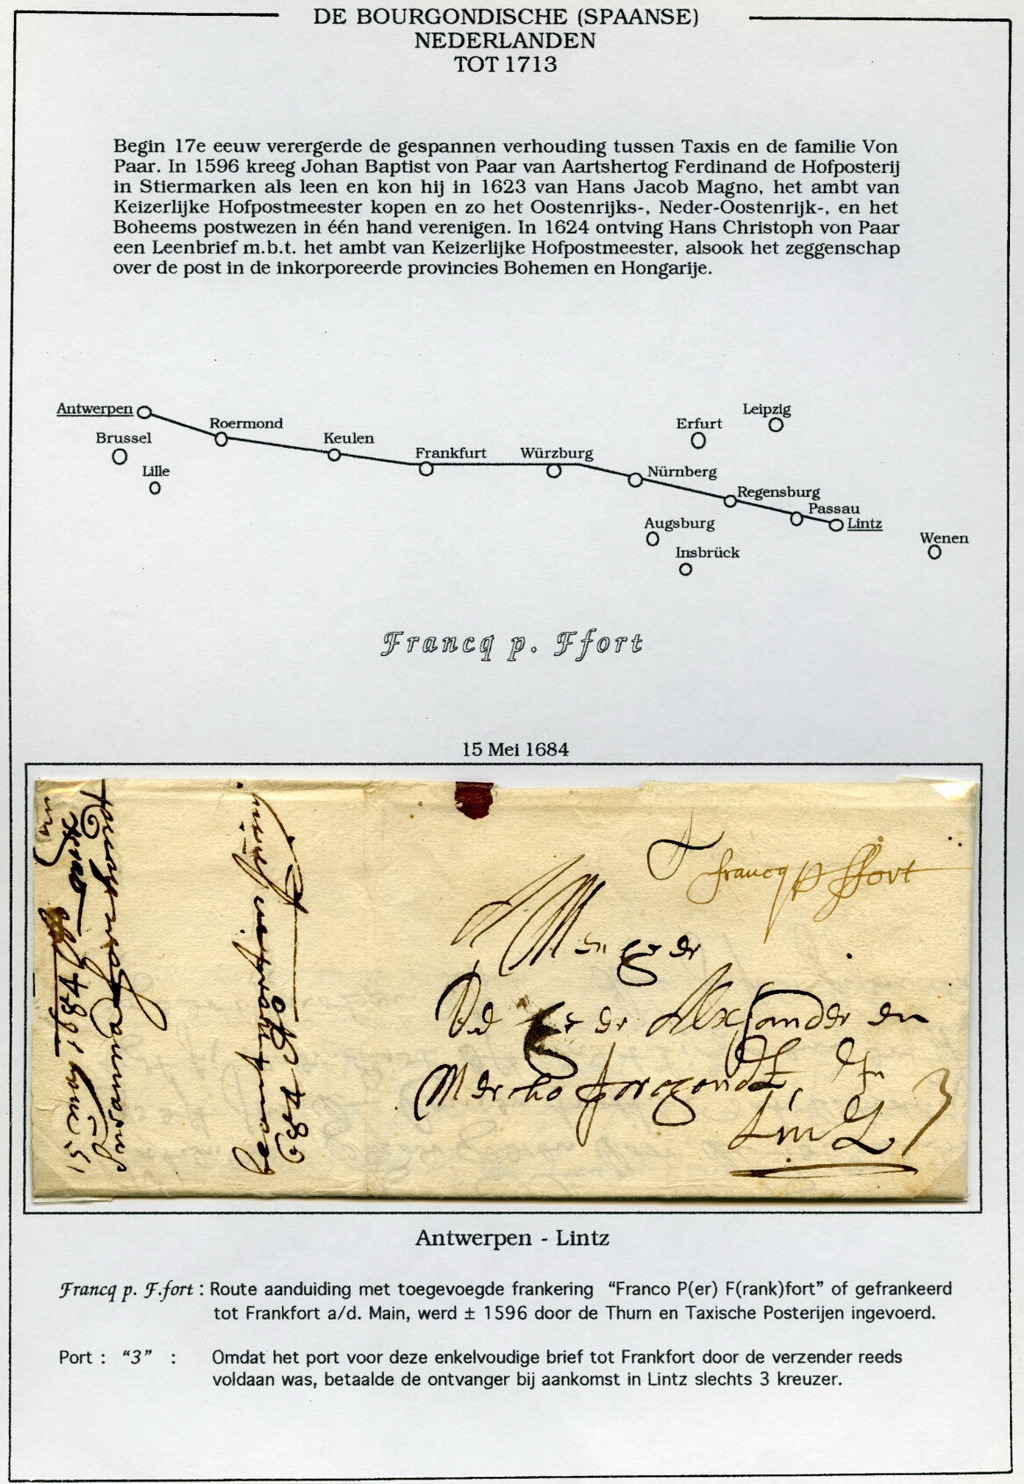 DE BOURGONDISCHE (SPAANSE)
NEDERLANDEN
TOT 1713
Begin 17e eeuw verergerde de gespannen verhouding tussen Taxis en de familie Von
Paar. In 1596 kreeg Johan Baptist von Paar van Aartshertog Ferdinand de Hofposterij
in Stiermarken als leen en kon hij in 1623 van Hans Jacob Magno, het ambt van
Keizerlijke Hofpostmeester kopen en zo het Oostenrijks-, Neder-Oostenrijk-, en het
Boheems postwezen in één hand verenigen. In 1624 ontving Hans Christoph von Paar
een Leenbrief m.b.t. het ambt van Keizerlijke Hofpostmeester, alsook het zeggenschap
over de post in de inkorporeerde provincies Bohemen en Hongarije.
Antwerpen
Brussel
Lille
Roermond
Keulen
Frankfurt
Würzburg
Erfurt
Leipzig
Nürnberg
Regensburg
Passau
Lintz
Augsburg
Insbrück
Wenen
Francq p. Ffort
15 Mei 1684
francq p ffort
De Heer Alexsander en
in
Lintz 3
1684
Antwerpen - Lintz
Francq p. F.fort : Route aanduiding met toegevoegde frankering "Franco P(er) F(rank)fort" of gefrankeerd
tot Frankfort a/d. Main, werd ± 1596 door de Thurn en Taxische Posterijen ingevoerd.
Port : "3" : Omdat het port voor deze enkelvoudige brief tot Frankfort door de verzender reeds
voldaan was, betaalde de ontvanger bij aankomst in Lintz slechts 3 kreuzer.